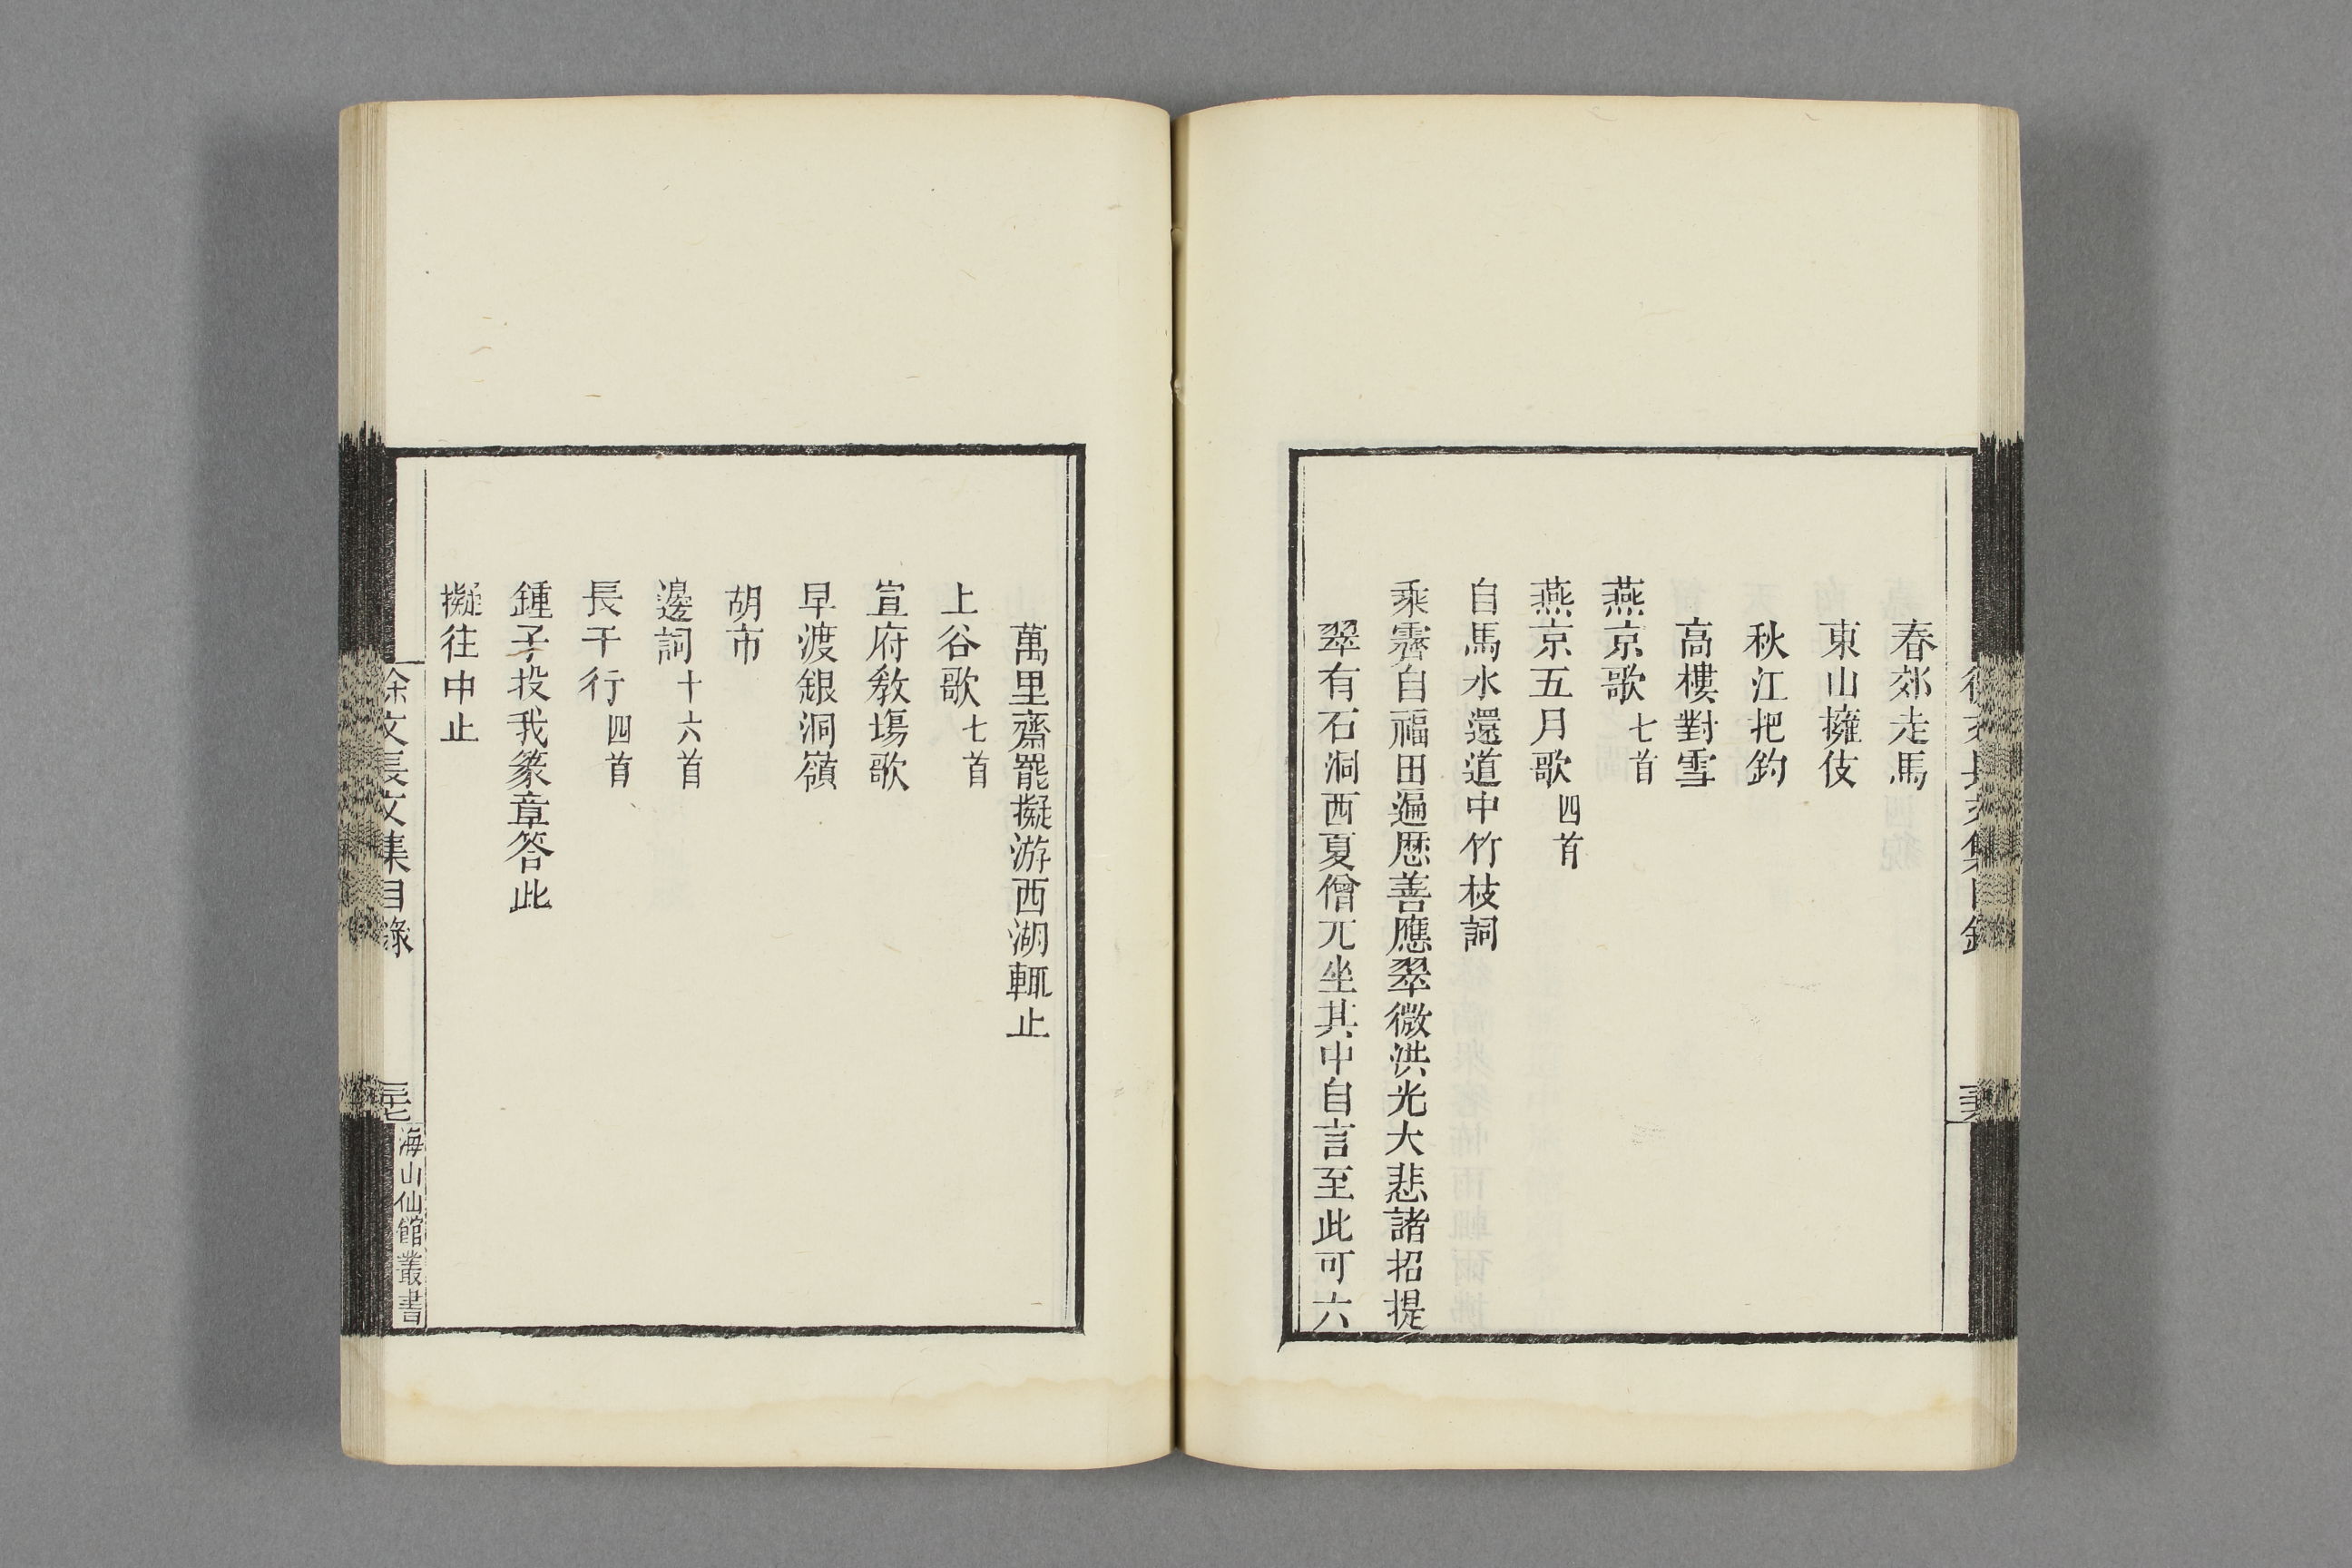 春郊走馬
東山擁伎
秋江把釣
高樓對雪
燕京歌七首
燕京五月歌四首
自馬水還道中竹枝詞
乘霽自福田遍歴善應翠微洪光大悲諸招提
翠有石洞西夏僧兀坐其中自言至此可六
萬里齋罷擬游西湖輒止
上谷歌七首
宣府教塲歌
早渡銀洞嶺
胡市
邊詞十六首
長干行四首
鍾子投我篆章答此
擬往中止
徐文長文集目錄
三七
海山仙館叢書